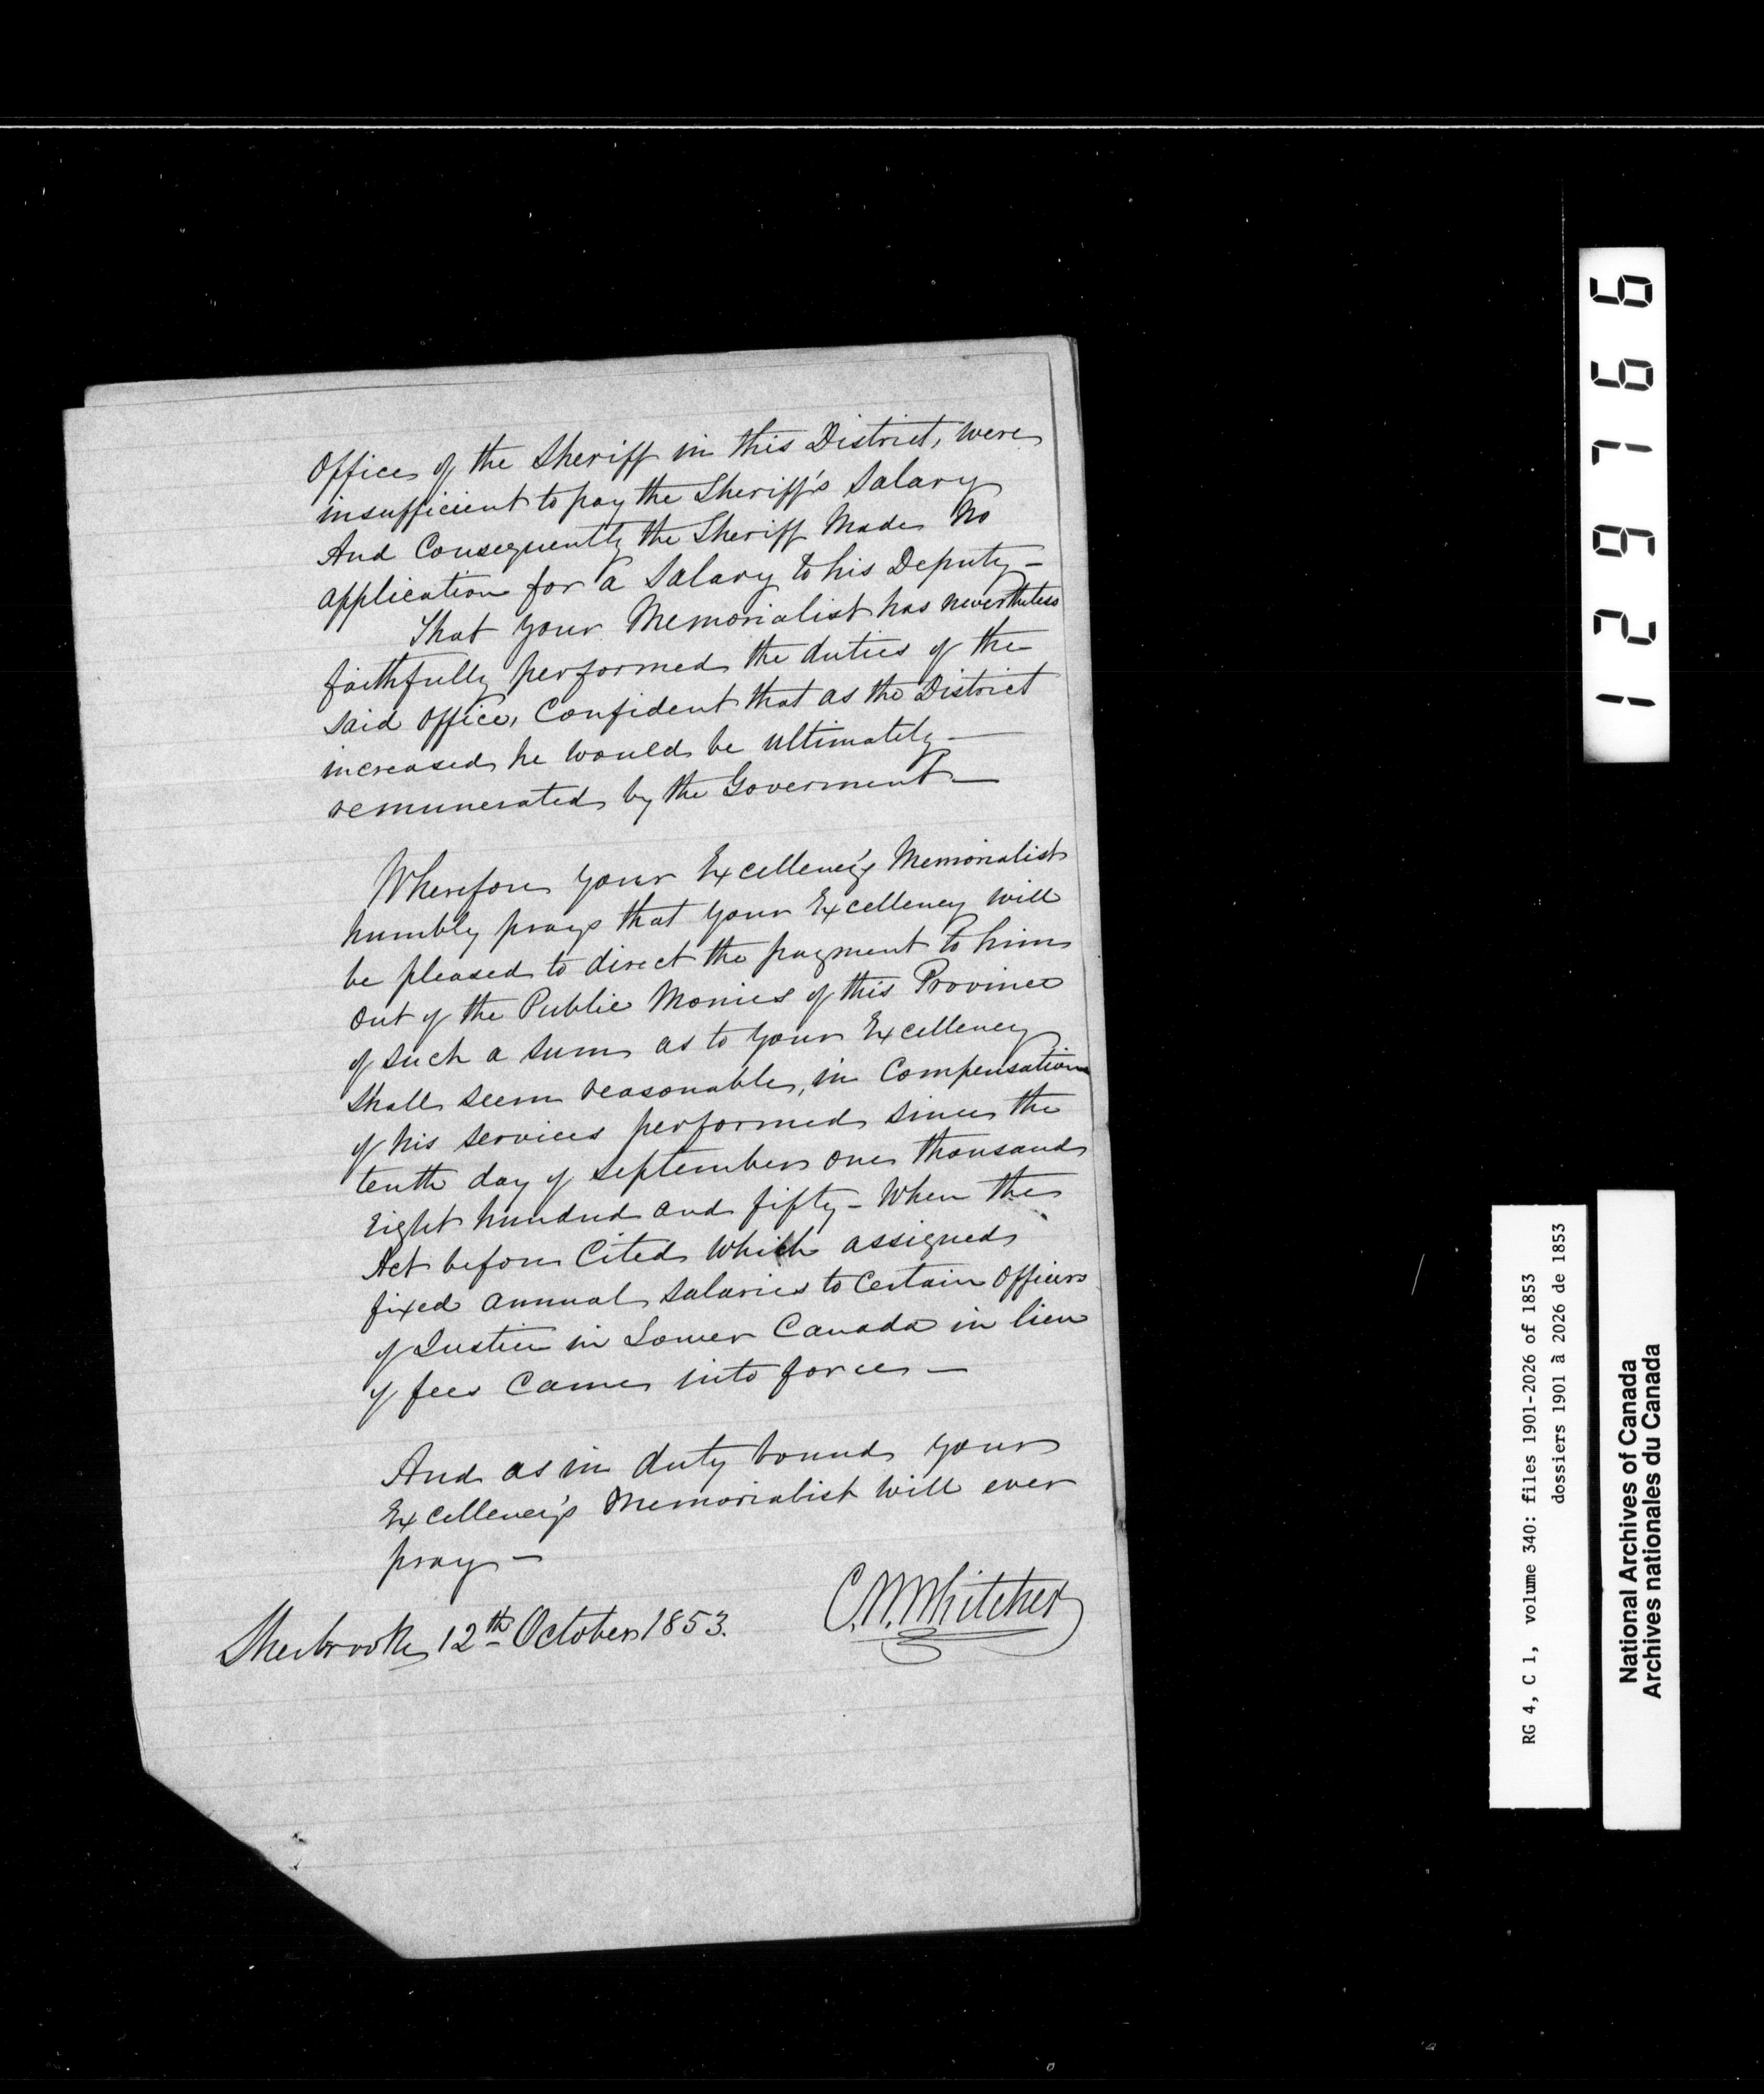 Office of the Sheriff in this District, were
insufficient to pay the Sheriff's Salary
And Consequently the Sheriff Made No
application for a Salary to his Deputy -
That your Memorialist has nevertheless
faithfully performed the duties of the
said office, Confident that as the District
increased he would be ultimately —
remunerated by the Goverment —
Wherefore your Excellency's Memorialist
humbly prays that your Excellency will
be pleased to direct the payment to him
out of the Public Monies of this Province
of such a sum as to your Excellency
shall seem reasonable, in Compensation
of his services performed since the
tenth day of September one thousand
Eight hundred and fifty - When the
Act before Cited which assigned
fixed annual salaries to Certain Officers
of Justice in Lower Canada in lieu
of fees Came into force —
And as in duty bound your
Excellency's Memorialist will ever
pray —
C.W. Whitcher
Sherbrooke 12th October 1853.
129766
RG 4, C 1, volume 340: files 1901-2026 of 1853
dossiers 1901 à 2026 de 1853
National Archives of Canada
Archives nationales du Canada